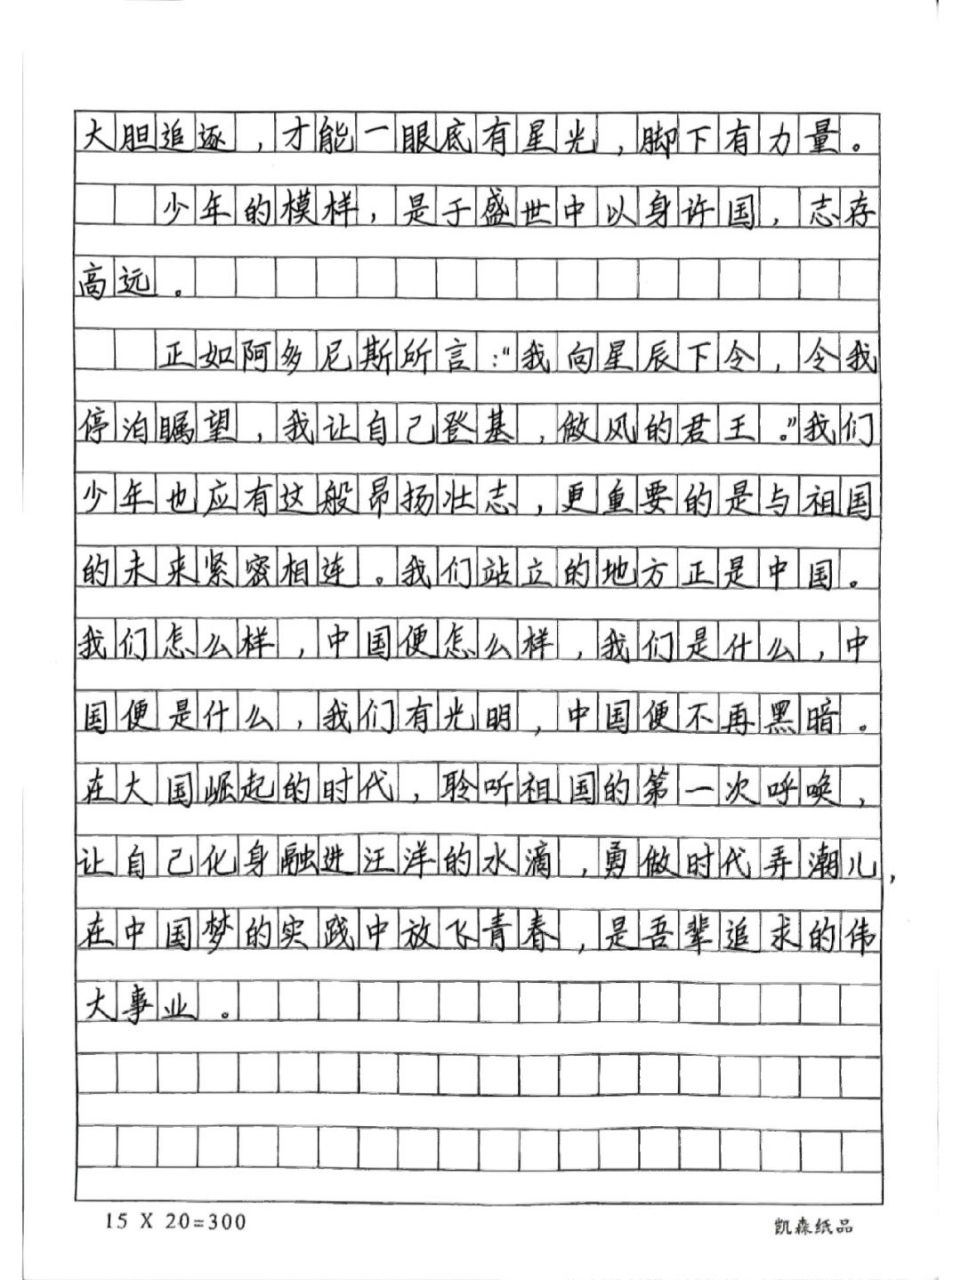 大胆追逐，才能一眼底有星光，脚下有力量。
少年的模样，是于盛世中以身许国，志存
高远。
正如阿多尼斯所言："我向星辰下令，令我
停泊瞩望，我让自己登基，做风的君王。"我们
少年也应有这般昂扬壮志，更重要的是与祖国
的未来紧密相连。我们站立的地方正是中国。
我们怎么样，中国便怎么样，我们是什么，中
国便是什么，我们有光明，中国便不再黑暗。
在大国崛起的时代，聆听祖国的第一次呼唤，
让自己化身融进汪洋的水滴，勇做时代弄潮儿，
在中国梦的实践中放飞青春，是吾辈追求的伟
大事业。
15 X 20=300
凯森纸品